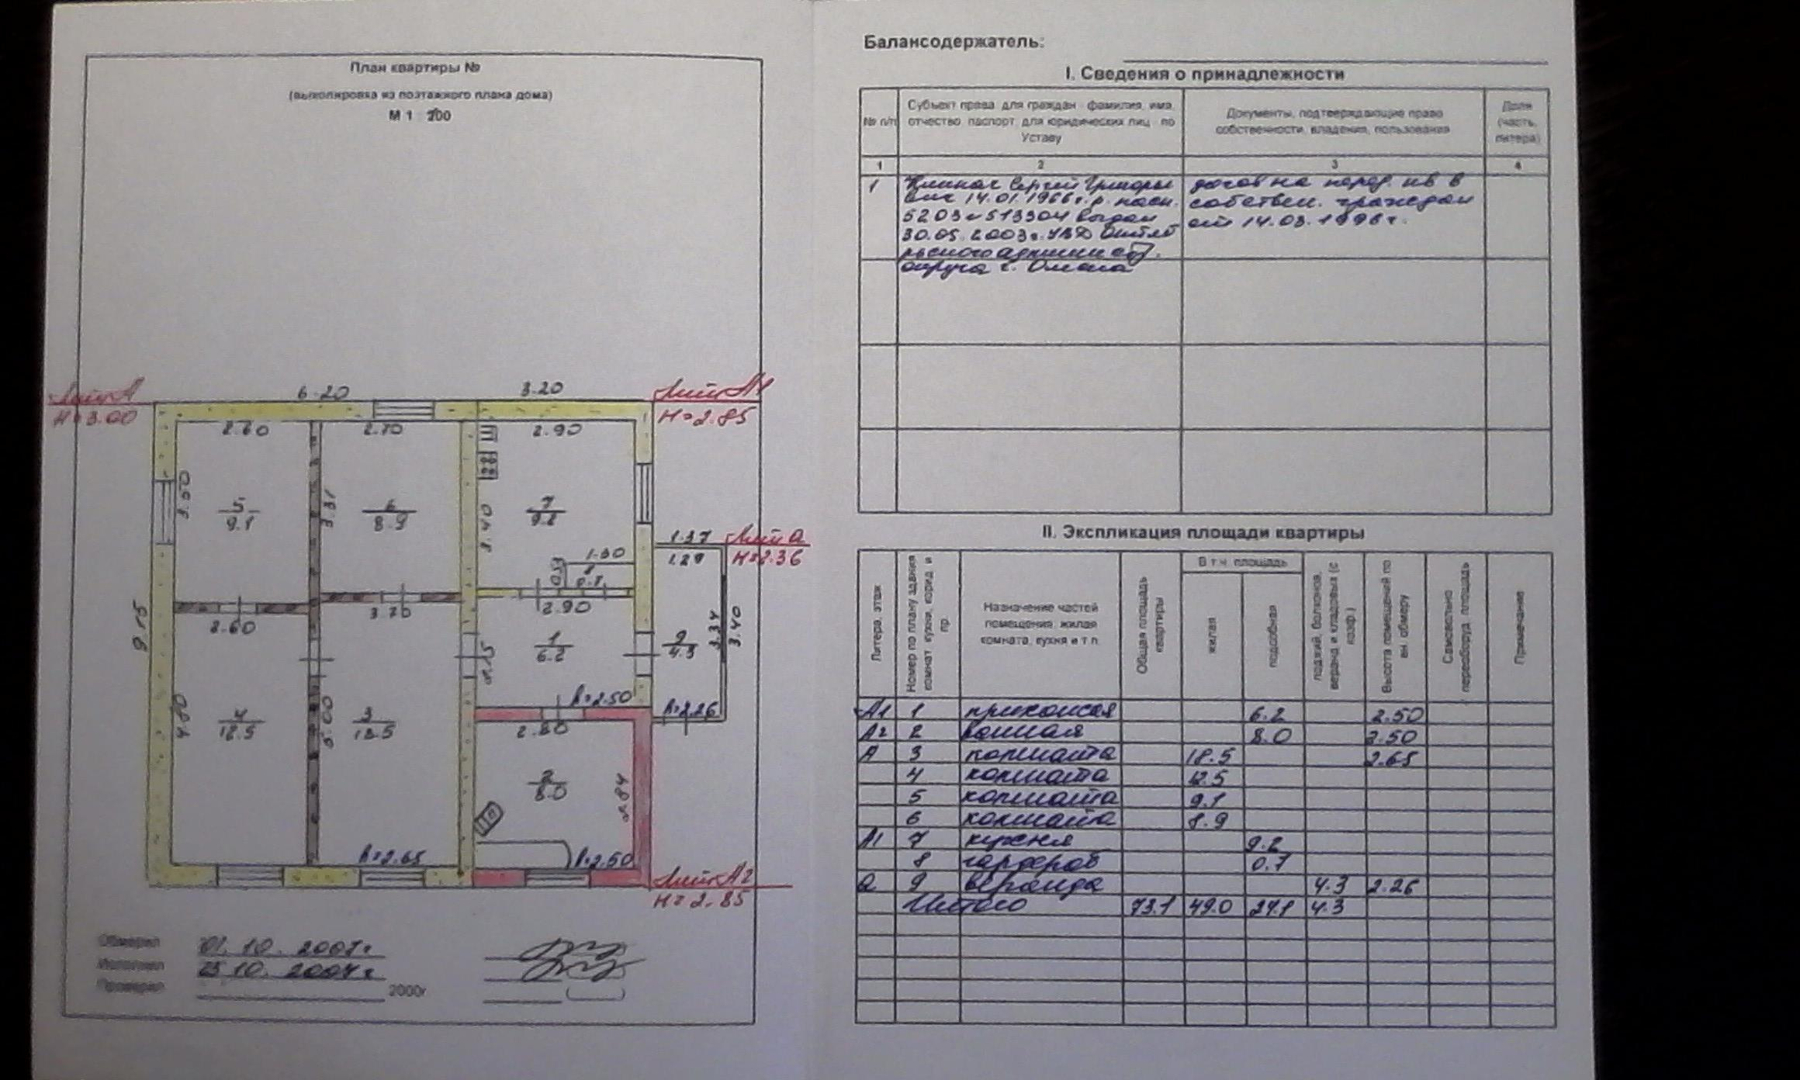 План квартиры №
(выкопировка из поэтажного плана дома)
М 1 : 200
Лит А
H=3.00
6.20
3.20
Лит А1
H=2.85
2.60
2.70
2.90
3.50
5
9.1
3.31
6
8.9
3.40
7
9.2
1.30
0.53
8
0.7
1.37
Лит а
H=2.36
1.29
2.60
3.70
2.90
9.15
2.15
1
6.2
9
4.3
3.34
3.40
h=2.50
h=2.26
4.80
4
12.5
5.00
3
18.5
2.80
2
8.0
2.84
h=2.65
h=2.50
Лит А2
H=2.85
Обмерил 01.10.2007г
Исполнил 25 10. 2007г
Проверил 2000г
Балансодержатель:
I. Сведения о принадлежности
№ п/п
Субъект права: для граждан - фамилия, имя,
отчество, паспорт, для юридических лиц - по
Уставу
Документы, подтверждающие право
собственности, владения, пользования
Доля
(часть,
литера)
1 2 3 4
1 Сергей Григорь
вич 14.01.1966г.р. пасп.
5203 № 513304 выдан
30.05.2003г. УВД Октяб
рьского администр.
округа г. Омска
договор на перед. кв в
собствен. граждан
от 14.03.1996г.
II. Экспликация площади квартиры
Литера, этаж
Номер по плану здания
комнат, кухни, корид. и
пр.
Назначение частей
помещения: жилая
комната, кухня и т.п.
Общая площадь
квартиры
В т.ч. площадь
жилая
подсобная
лоджий, балконов,
веранд и кладовых (с
коэф.)
Высота помещений по
вн. обмеру
Самовольно
переоборуд. площадь
Примечание
А1 1 прихожая 6.2 2.50
А2 2 ванная 8.0 2.50
А 3 комната 18.5 2.65
4 комната 12.5
5 комната 9.1
6 комната 8.9
А1 7 кухня 9.2
8 гардероб 0.7
а 9 веранда 4.3 2.26
Итого 73.1 49.0 24.1 4.3